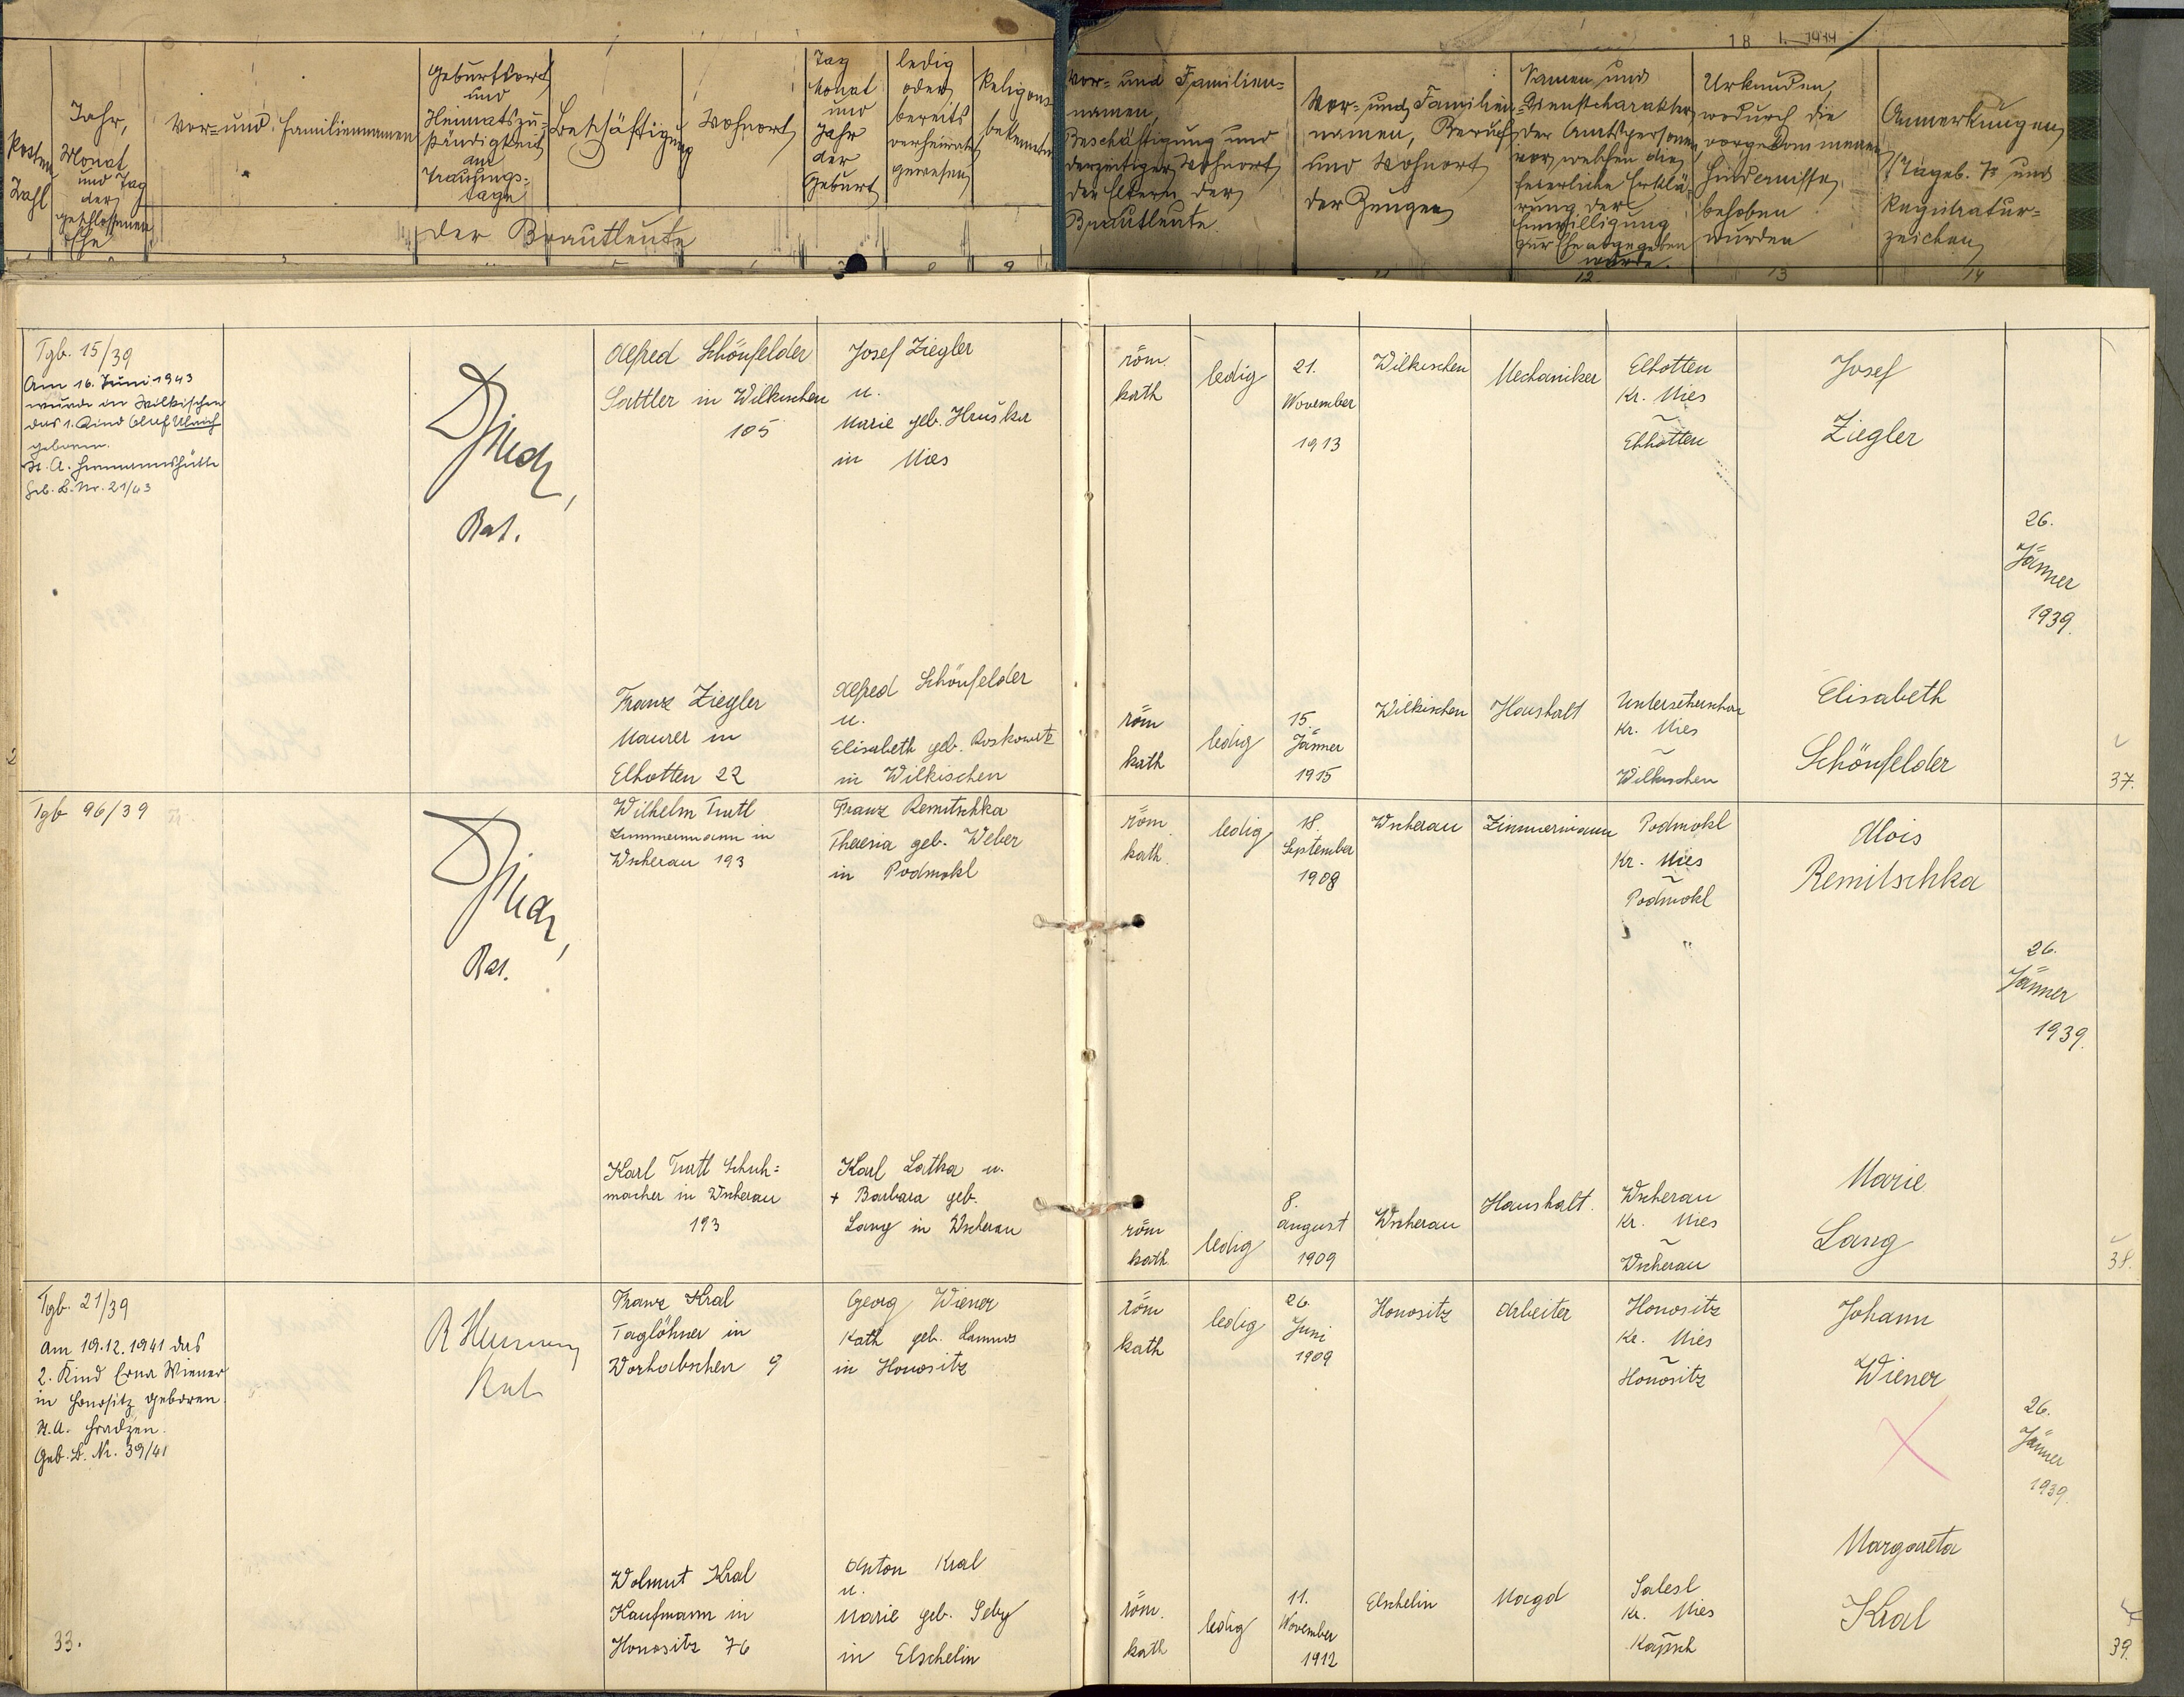 18 1. 1939
Posten
Zahl
Jahr,
Monat
und Tag
der
geschlossenen
Ehe
Vor- und Familiennamen
Geburtsort
und
Heimatszu-
ständigkeit
am
Trauungs-
tage
Beschäftigung
Wohnort
Tag
Monat
und
Jahr
der
Geburt
ledig
oder
bereits
verheiratet
gewesen
Religions
bekenntnis
der Brautleute
9
Vor- und Familien-
namen,
Beschäftigung und
derzeitiger Wohnort
der Eltern der
Brautleute
Vor- und Familien-
namen, Beruf
und Wohnort
der Zeugen
Namen und
Dienstcharakter
der Amtsperson
vor welcher die
feierliche Erklä-
rung der
Einwilligung
zur Ehe abgegeben
wurde.
Urkunden,
wodurch die
vorgekommenen
Hindernisse
behoben
wurden
Anmerkungen
Tageb. Z. und
Registratur-
zeichen
11
12
13
14
Tgb. 15/39
Am 16. Juni 1943
wurde in Wilkischen
das 1. Kind Olaf Ulrich
geboren.
St. A. Hermannshütte
Geb. B. Nr. 21/43
Rat.
Alfred Schönfelder
Sattler in Wilkischen
105
Josef Ziegler
u.
Marie geb. Hruška
in Mies
röm.
kath
ledig
21.
November
1913
Wilkischen
Mechaniker
Elhotten
Kr. Mies
~
Elhotten
Josef
Ziegler
26.
Jänner
1939.
Franz Ziegler
Maurer in
Elhotten 22
Alfred Schönfelder
u.
Elisabeth geb. Roskowetz
in Wilkischen
röm
kath
ledig
15.
Jänner
1915
Wilkischen
Haushalt
Kr. Mies
~
Wilkischen
Elisabeth
Schönfelder
37.
Tgb 96/39
Rat.
Wilhelm Trutl
Zimmermann in
Wscherau 193
Franz Remitschka
Theresia geb. Weber
in Podmokl
röm
kath.
ledig
18.
September
1908
Wscherau
Zimmermann
Podmokl
Kr. Mies
~
Podmokl
Alois
Remitschka
26.
Jänner
1939.
Karl Trutl Schuh=
macher in Wscherau
193
Karl Latka u.
+ Barbara geb.
Lang in Wscherau
röm
kath.
ledig
8.
August
1909
Wscherau
Haushalt.
Wscherau
Kr. Mies
~
Wscherau
Marie
Lang
38.
Tgb. 21/39
am 19.12.1941 das
2. Kind Erna Wiener
in Honositz geboren.
St. A. Hradzen.
Geb. B. Nr. 39/41
Rat
Franz Kral
Taglöhner in
Worhabschen 9
Georg Wiener
Kath geb. Lammos
in Honositz
röm
kath
ledig
26.
Juni
1909
Honositz
Arbeiter
Honositz
Kr. Mies
~
Honositz
Johann
Wiener
26.
Jänner
1939.
Wolmut Kral
Kaufmann in
Honositz 76
Anton Kral
u.
Marie geb. Seby
in Elschelin
röm.
kath
ledig
11.
November
1912
Elschelin
Magd
Salesl
Kr. Mies
~
Kapsch
Margareta
Kral
39.
33.